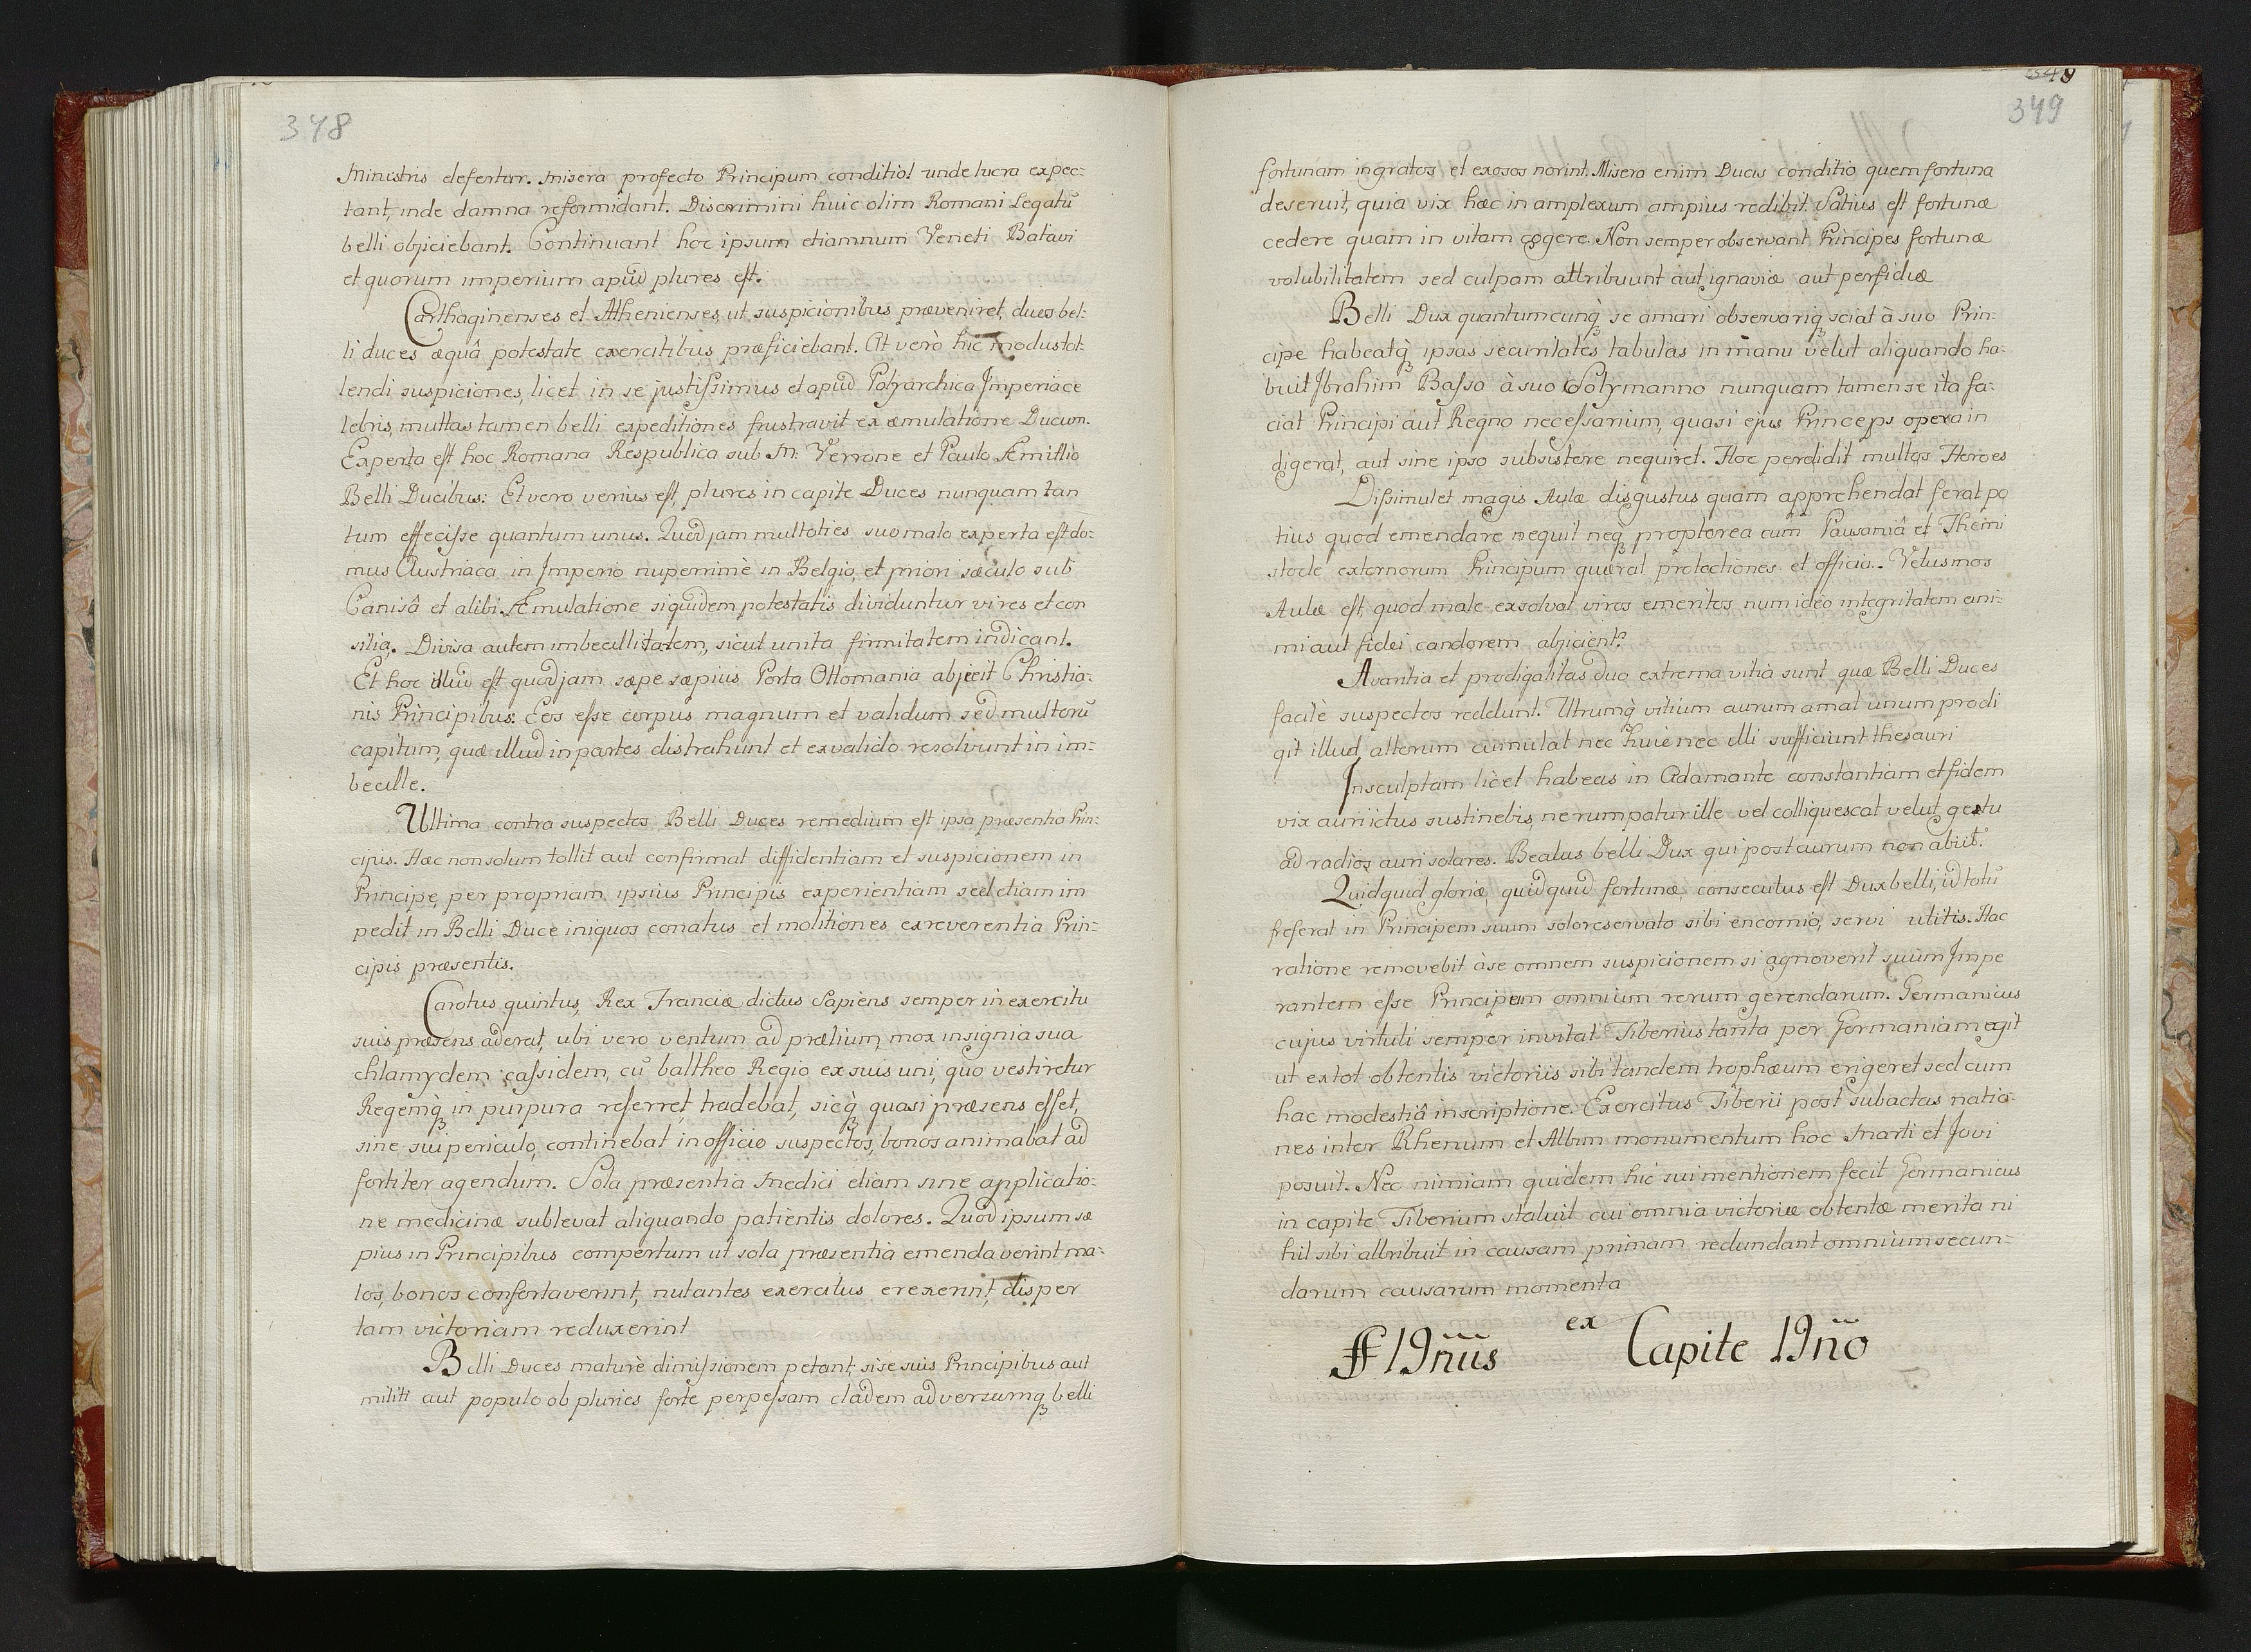 348
Ministris defertur. Misera profecto Principum conditio! unde lucra expec-
tant, inde damna reformidant. Discrimini huic olim Romani Legatũ
belli objiciebant. Continuant hoc ipsum etiamnum Veneti Batavi
et quorum imperium apud plures est.
Carthaginenses et Athenienses, ut suspicionibus præveniret, duos bel-
li duces æquâ potestate exercitibus præficiebant. At verò hic modus tol-
lendi suspiciones, licet in se justissimus et apud Polyarchica Imperia ce
lebris, multas tamen belli expeditiones frustravit ex æmulatione Ducum.
Experta est hoc Romana Respublica sub M: Verrone et Paulo Æmilio
Belli Ducibus: Et vero verius est, plures in capite Duces nunquam tan
tum effecisse quantum unus. Quod jam multoties suo malo experta est do-
mus Austriaca in Imperio nuperrimè in Belgio, et priori sæculo sub
Canisâ et alibi. Æmulatione siquidem potestatis dividuntur vires et con
silia. Divisa autem imbecillitatem, sicut unita firmitatem indicant.
Et hoc illud est quod jam sæpe sæpius Porta Ottomania abjecit Christia-
nis Principibus: Eos esse corpus magnum et validum sed multorũ
capitum, quæ illud in partes distrahunt et ex valido resolvunt in im-
becille.
Ultima contra suspectos Belli Duces remedium est ipsa præsentia Prin-
cipis. Hæc non solum tollit aut confirmat diffidentiam et suspicionem in
Principe, per propriam ipsius Principis experientiam sed etiam im
pedit in Belli Duce iniquos conatus et molitiones ex reverentia Prin-
cipis præsentis.
Carolus quintus, Rex Franciæ dictus Sapiens semper in exercitu
suis præsens aderat, ubi vero ventum ad prælium, mox insignia sua
chlamydem cassidem, cũ baltheo Regio ex suis uni, quo vestiretur
Regemq́ in purpura referret, tradebat, sicq́ quasi præsens esset,
sine sui periculo, continebat in officio suspectos, bonos animabat ad
fortiter agendum. Sola præsentia Medici etiam sine applicatio-
ne medicinæ sublevat aliquando patientis dolores. Quod ipsum sæ
pius in Principibus compertum ut sola præsentia emendaverint ma-
los, bonos confortaverint, nutantes exercitus erexerint, disper
tam victoriam reduxerint
Belli Duces maturè dimissionem petant, si se suis Principibus aut
militi aut populo ob pluries forte perpessam cladem adversumq́ belli
349
fortunam ingratos et exosos norint. Misera enim Ducis conditio quem fortuna
deseruit, quia vix hæc in amplexum ampius redibit. Satius est fortunæ
cedere quam in vitam cogere. Non semper observant Principes fortunæ
volubilitatem sed culpam attribuunt aut ignaviæ aut perfidiæ
Belli Dux quantumcunq́ se amari observariq́ sciat à suo Prin-
cipe habeatq́ ipsas securitates tabulas in manu velut aliquando ha-
buit Ibrahim Basso à suo Solymanno nunquam tamen se ita fa-
ciat Principi aut Regno necessarium, quasi ejus Princeps opera in
digerat, aut sine ipso subsistere nequiret. Hoc perdidit multos Heroes
Dissimulet magis Aulæ disgustus quam apprehendat ferat po
tius quod emendare nequit neq́ propterea cum Pausaniâ et Themi
stocle externorum Principum quærat protectiones et officia.. Vetus mos
Aulæ est, quod male exsolvat viros emeritos num ideo integritatem ani-
mi aut fidei candorem abjicient?
Avaritia et prodigalitas duo extrema vitia sunt quæ Belli Duces
facilè suspectos reddunt. Utrumq́ vitium aurum amat unum prodi
git illud, alterum cumulat nec huic nec illi sufficiunt thesauri
Insculptam licet habeas in Adamante constantiam et fidem
vix auri ictus sustinebis, ne rumpatur ille vel colliquescat velut gestu
ad radios auri solares. Beatus belli Dux qui post aurum non abiit.
Quidquid gloriæ, quidquid fortunæ, consecutus est Dux belli, id totũ
referat in Principem suum solo reservato sibi encomio, servi utitis. Hac
ratione removebit à se omnem suspicionem si agnoverit suum Impe
rantem esse Principem omnium rerum gerendarum. Germanicus
cujus virtuti semper invitat Tiberius tanta per Germaniam egit
ut ex tot obtentis victoriis sibi tandem trophæum erigeret sed cum
hac modestiâ inscriptione. Exercitus Tiberii post subactas natio-
nes inter Rhenum et Albim monumentum hoc Marti et Jovi
posuit. Nec nimiam quidem hic sui mentionem fecit Germanicus
in capite Tiberium statuit cui omnia victoriæ obtentæ merita ni
hil sibi attribuit in causam primam redundant omnium secun-
darum causarum momenta
ff 19nus ex Capite 19no